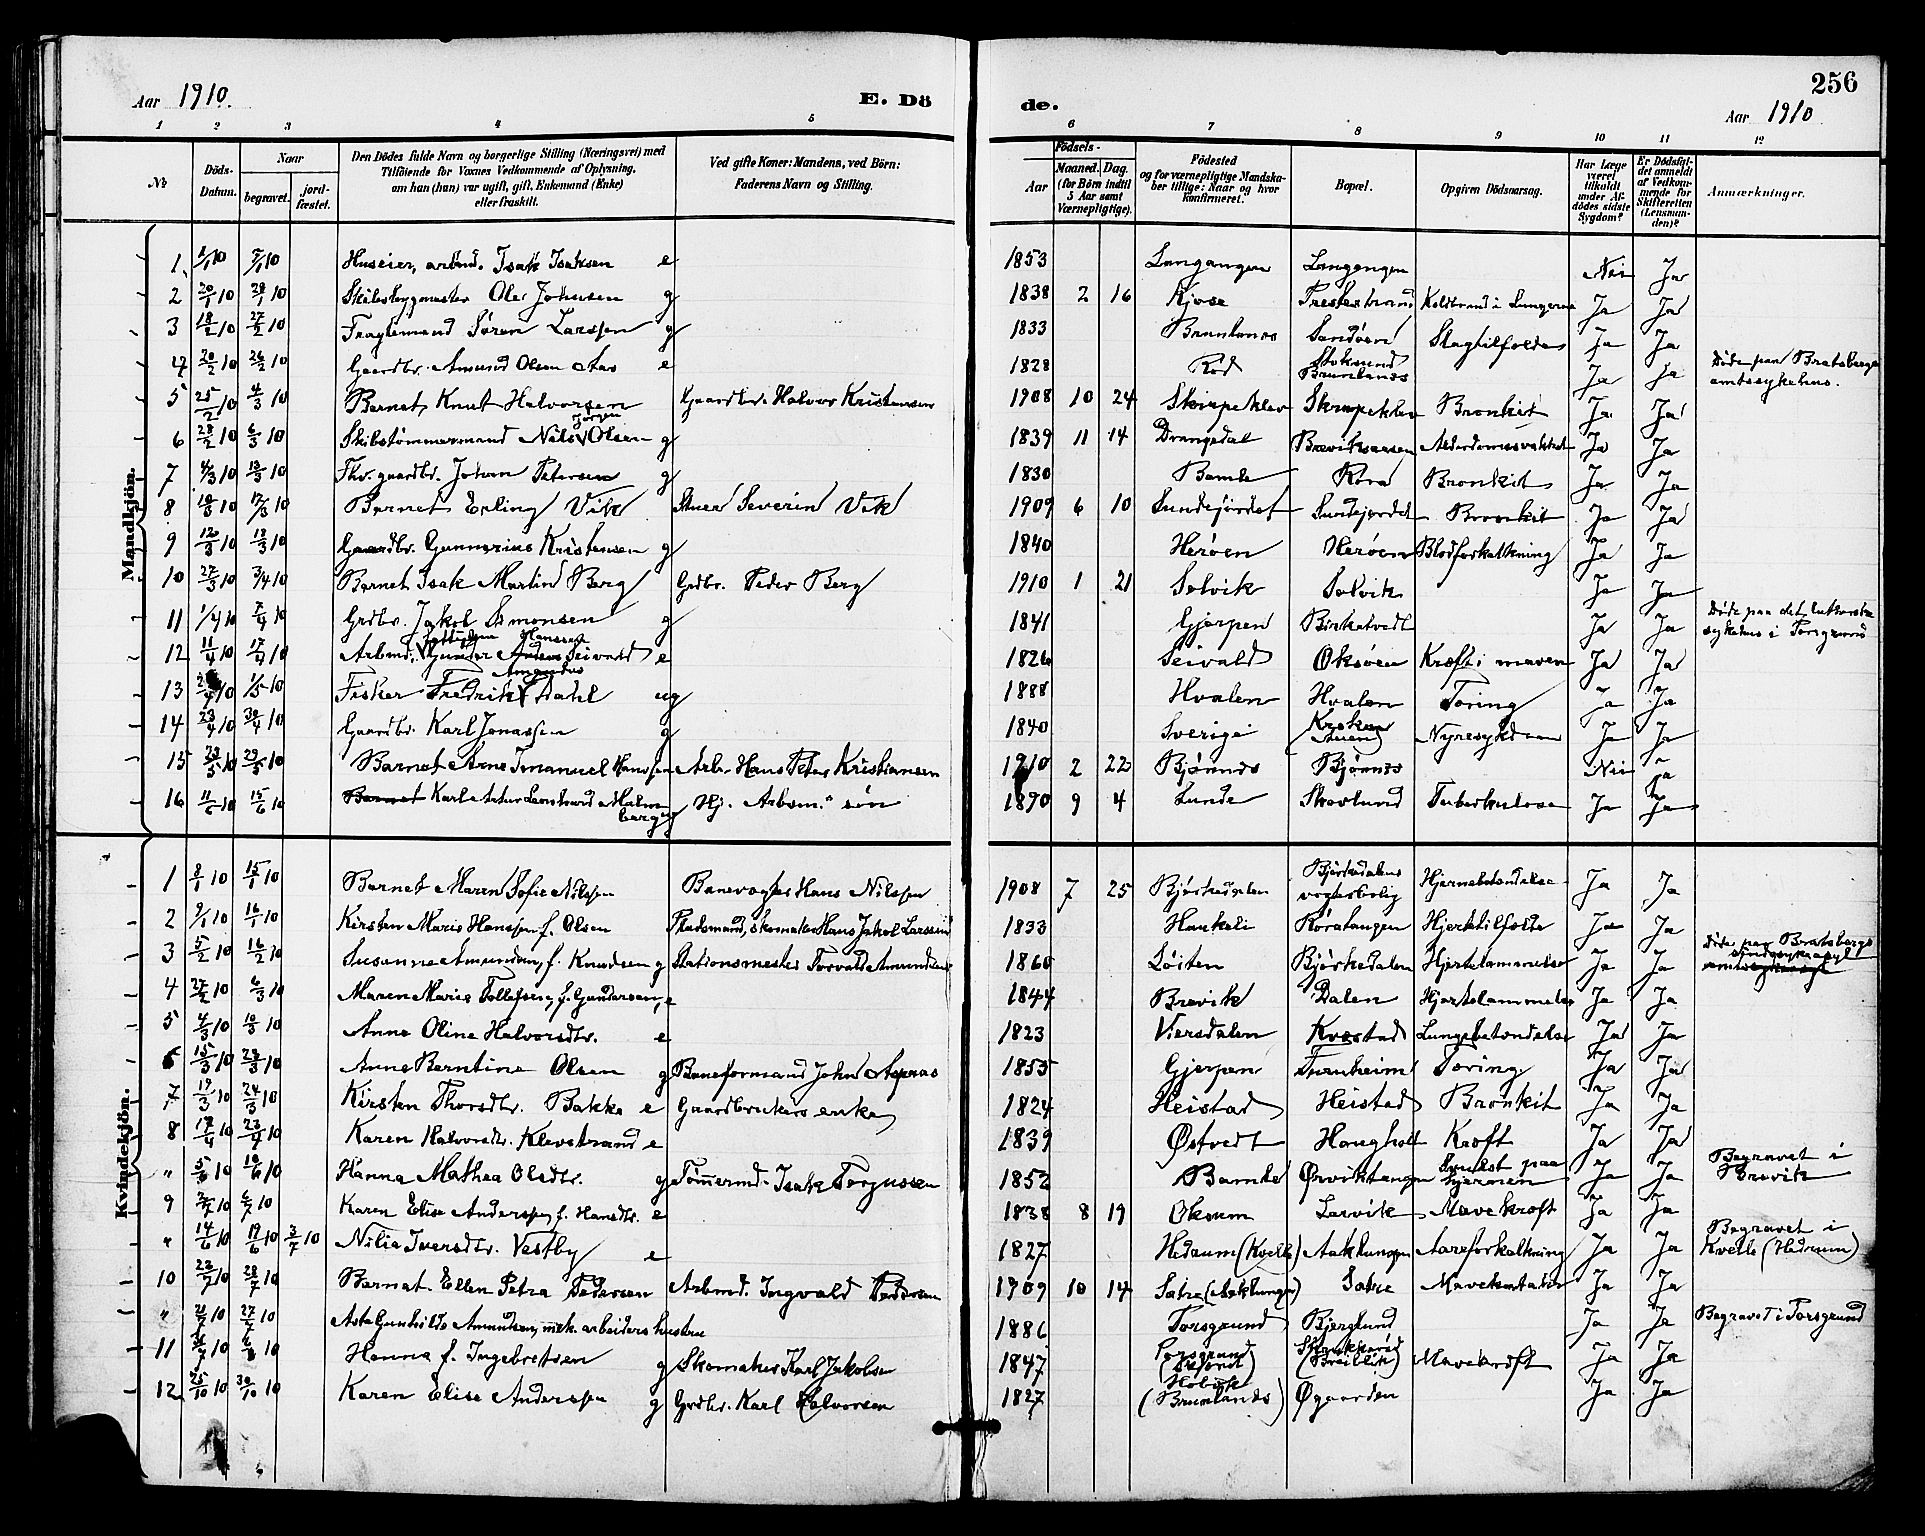 256
Aar 1910.
E. Dö
de.
Aar 1910
1 2 3 4 5 6 7 8 9 10 11 12
No
Döds-Datum.
Naar
begravet.
jord-fæstet.
Den Dödes fulde Navn og borgerlige Stilling (Næringsvei) med
Tilföiende for Voxnes Vedkommende af Oplysning,
om han (hun) var ugift, gift, Enkemand (Enke)
eller fraskilt.
Ved gifte Koner: Mandens, ved Börn:
Faderens Navn og Stilling.
Födsels-
Aar
Maaned. Dag.
(for Börn indtil
5 Aar samt
Værnepligtige).
Födested
og for værnepligtige Mandska-
ber tillige: Naar og hvor
konfirmeret.
Bopæl.
Opgiven Dödsaarsag.
Har Læge
været
tilkaldt
under Af-
dödes sidste
Sygdom?
Er Dödsfal-
det anmeldt
af Vedkom-
mende for
Skifteretten
(Lensman-
den)?
Anmærkninger.
Mandkjön.
1 1/1 10 7/1 10 Huseier, arbmd. Isak Isaksen e 1853 Langangen Langangen Nei Ja
2 20/1 10 28/1 10 Skibsbygmester Ole Johnsen g 1838 2 16 Kjose Trosbestrand Koldbrand i Lungerne Ja Ja
3 18/2 10 27/2 10 Fragtemand Søren Larssen g 1833 Brunlanes Sandøen Slagtilfælde Ja Ja
4 20/2 10 26/2 10 Gaardbr. Amund Olsen Aas e 1828 Rød Stoksund Brunlanes Ja Ja Døde paa Bratsbergs amtssykehus.
5 25/2 10 4/3 10 Barnet Knut Halvorsen Gaardbr. Halvor Kristensen 1908 10 24 Skirpeklev Skirpeklev Bronkit Ja Ja
6 28/2 10 6/3 10 Skibstømmermand Nils Jørgen Olsen g 1839 11 14 Drangedal Breviksaasen Alderdomssvakhet Ja Ja
7 4/3 10 13/3 10 Fhv. gaardbr. Johan Petersen g 1830 Bamle Røra Bronkit Ja Ja
8 10/3 10 17/3 10 Barnet Erling Vik Stuer Severin Vik 1909 6 10 Sundejordet Sundejordet Bronkit Ja Ja
9 12/3 10 18/3 10 Gaardbr. Gunnerius Kristensen g 1840 Herøen Herøen Blodforkalkning Ja Ja
10 27/3 10 3/4 10 Barnet Isak Martin Berg Grdbr. Peder Berg 1910 1 21 Solvik Solvik Ja Ja
11 1/4 10 7/4 10 Grdbr. Jakob Simonsen g 1841 Gjerpen Birketvedt Ja Ja Døde paa det lutherske sykehus i Porsgrund
12 11/4 10 17/4 10 Arbmd. Gunder Hanssen Seivald e 1826 Seivald Oksøen Kræft i maven Ja Ja
13 1/5 10 Fisker Fredrik Amandus Dahl ug 1888 Hvalen Hvalen Tæring Ja Ja
14 23/4 10 30/4 10 Gaardbr. Karl Jonassen g 1840 Sverige Kroken Nyresykdom Ja Ja
15 23/5 10 29/5 10 Barnet Arne Imanuel Hanssen Arbr. Hans Peter Kristiansen 1910 2 22 Bjønnes Bjønnes Nei Ja
16 11/6 10 15/6 10 Barnet Karl Artur Lenhard Malmberg ug Hj. Arbsm. søn 1890 9 4 Lunde Skoglund Tuberkulose Ja Ja
Kvindekjön.
1 8/1 10 15/1 10 Barnet Maren Sofie Nilssen Banevogter Hans Nilssen 1908 7 25 Bjørkedalen Bjørkedalens vogterbolig Hjernebetændelse Ja Ja
2 9/1 10 16/1 10 Kirsten Marie Hanssen f. Olsen Pladsmand, skomaker Hans Jakob Larssen 1833 Haukeli Røratangen Hjerteilfælde Ja Ja
3 5/2 10 16/2 10 Susanne Amundsen, f. Knudsen g Stationsmester Torvald Amundsen 1860 Løiten Bjørkedalen Hjertelammelse Ja Ja Døde paa Bratsbergs sindssykeasyl
4 27/2 10 6/3 10 Maren Marie Tollefsen, f. Gundersen, e 1844 Brevik Dalen Hjertelammelse Ja Ja
5 4/3 10 10/3 10 Anne Oline Halvorsdtr. e 1823 Viersdalen Kvestad Lungebetændelse Ja Ja
6 15/3 10 23/3 10 Anne Berntine Olsen g Baneformand John Aspaas 1855 Gjerpen Furuheim Tæring Ja Ja
7 17/3 10 24/3 10 Kirsten Thorsdtr. Bakke e Gaardbrukers enke 1824 Heistad Heistad Bronkit Ja Ja
8 17/4 10 23/4 10 Karen Halvorsdtr. Klevstrand e 1839 Østvedt Haugholt Kræft Ja Ja
" 5/6 10 10/6 10 Hanna Mathea Olsdtr. g Tømmermd. Isak Torgussen 1852 Bamle Ørviktangen Svulst paa hjernen Ja Ja Begravet i Brevik
9 2/7 10 6/7 10 Karen Elise Anderssen, f. Hansdtr. e 1838 8 19 Oksum Larvik Mavekræft Ja Ja
" 14/6 10 19/6 10 3/7 10 Nilia Iversdtr. Vestby e 1827 Hedrum (Kvelle) Aaklungen Aareforkalkning Ja Ja Begravet i Kvelle (Hedrum)
10 22/7 10 28/7 10 Barnet Ellen Petra Pedersen Arbmd. Ingvald Pedersen 1909 10 14 Sætre (Aaklungen) Sætre Mavekatarr Ja Ja
" 21/7 10 27/7 10 Asta Gunhilde Amundsen, mek. arbeiders hustru 1886 Porsgrund Bjerglund Ja Ja Begravet i Porsgrund
11 Hanna f. Ingebretsen g Skomaker Karl Jakobsen 1847 Porsgrund (Breiblik) Mavekræft Ja Ja
12 25/10 10 30/10 10 Karen Elise Anderssen g Grdbr. Karl Halvorsen 1827 (Brunlanes) Øgaarden Ja Ja